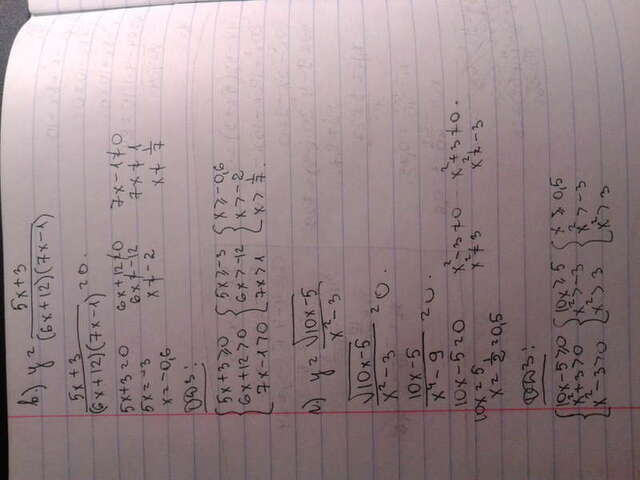 в) y = (5x+3)/((6x+12)(7x-1))
(5x+3)/((6x+12)(7x-1)) ≥ 0.
5x+3=0 6x+12≠0 7x-1≠0
5x=-3 6x≠-12 7x≠1
x=-0,6 x≠-2 x≠1/7
ОДЗ:
{5x+3≥0 {5x≥-3 {x≥-0,6
{6x+12>0 {6x>-12 {x>-2
{7x-1>0 {7x>1 {x>1/7.
y = √(10x-5)/(x²-3)
√(10x-5)/(x²-3) ≥ 0.
(10x-5)/(x⁴-9) ≥ 0.
10x-5=0 x²-3≠0 x²+3≠0.
10x=5 x²≠3 x²≠-3
x=1/2=0,5
ОДЗ:
{10x-5≥0 {10x≥5 {x≥0,5
{x²+3>0 {x²>-3 {x²>-3
{x²-3>0 {x²>3 {x²>3